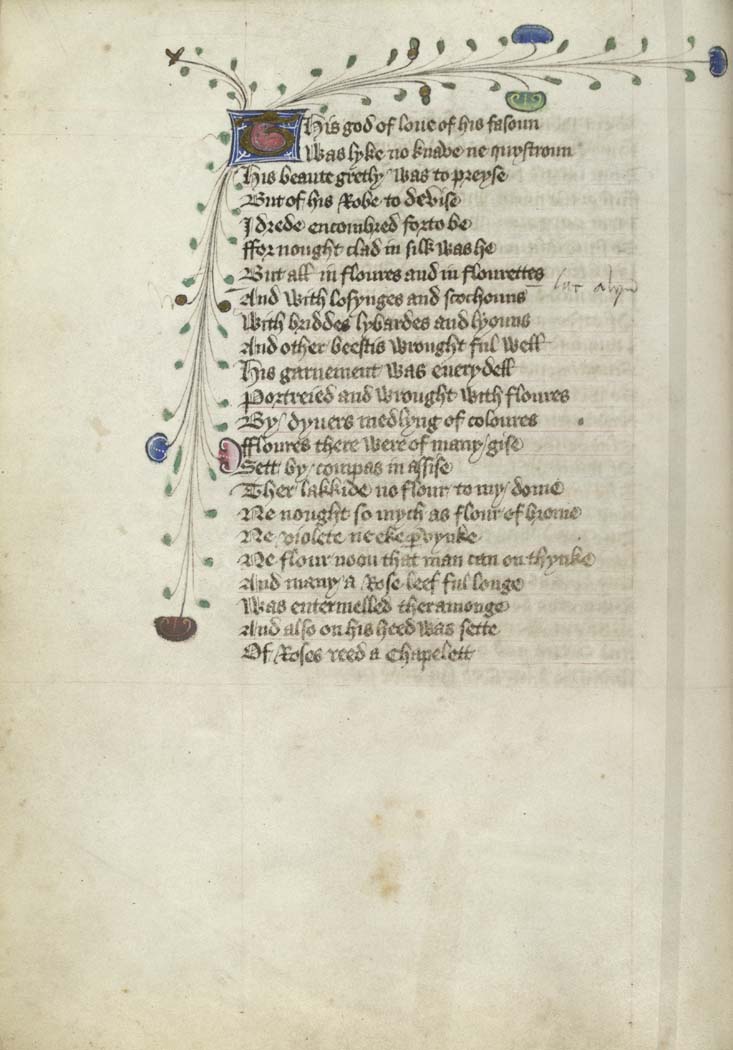 This god of loue of his fasoun
Was lyke no knave ne quystroun
His beaute gretly was to preyse
But of his Robe to devise
I drede encombred forto be
ffor nought clad in silk was he
But all in floures and in flourettes
And with losynges and scochouns
With briddes lybardes and lyouns
And other beestis wrought ful well
His garnement was euerydell
Portreied and wrought with floures
By dyuers medlyng of coloures
ffloures there were of many gise
Sett by compas in assise
Ther lakkide no flour to my dome
Ne nought so mych as flour of brome
Ne violete ne eke pervynke
Ne flour noon that man can on thynke
And many a Rose leef ful longe
Was entermelled ther amonge
And also on his heed was sette
Of Roses reed a Chapelett